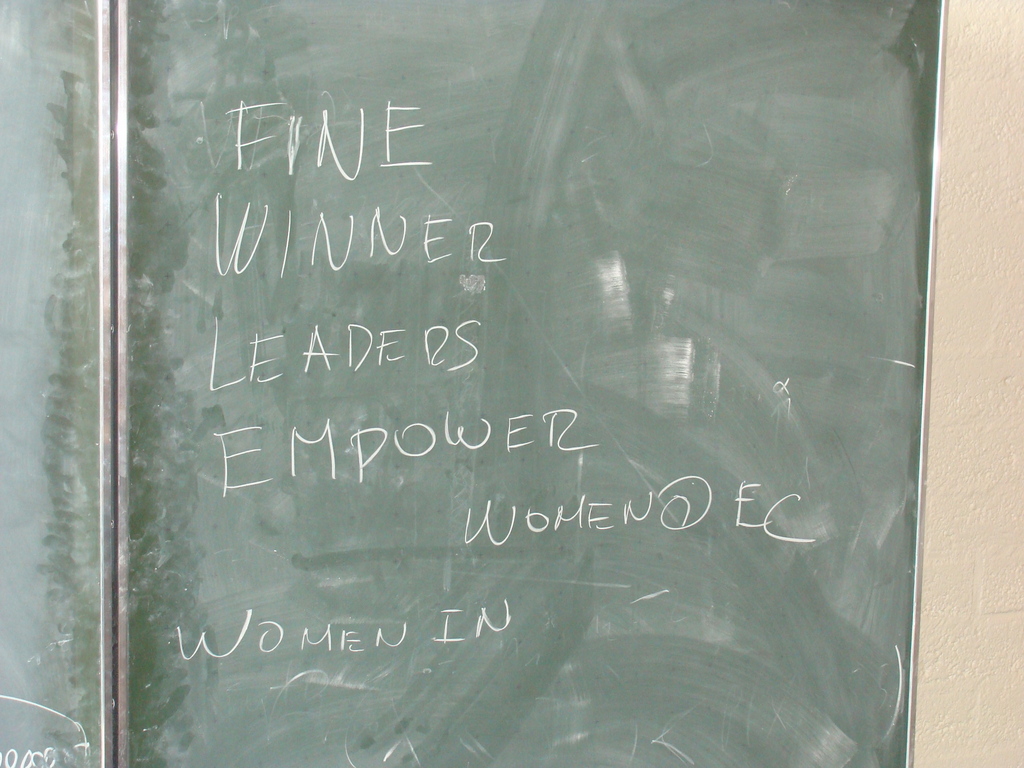 FINE
WINNER
LEADERS
EMPOWER
WOMEN@ EC
WOMEN IN